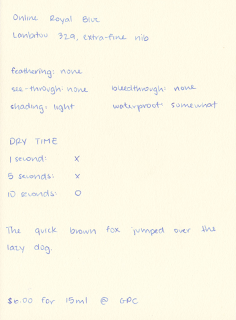 Online Royal Blue
Lanbitou 329, extra-fine nib
feathering: none
see-through: none bleedthrough: none
shading: light waterproof: somewhat
DRY TIME
1 second: X
5 seconds: X
10 seconds: O
The quick brown fox jumped over the
lazy dog.
$6.00 for 15ml @ GPC